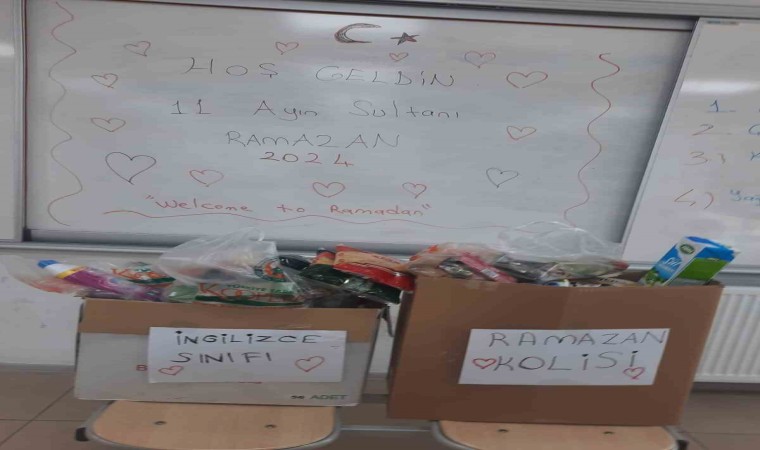 HOŞ GELDİN
11 Ayın Sultanı
RAMAZAN
2024
"Welcome to Ramadan"
1.
2.
3.)
4)
İNGİLİZCE
SINIFI
ADET
RAMAZAN
KOLİSİ